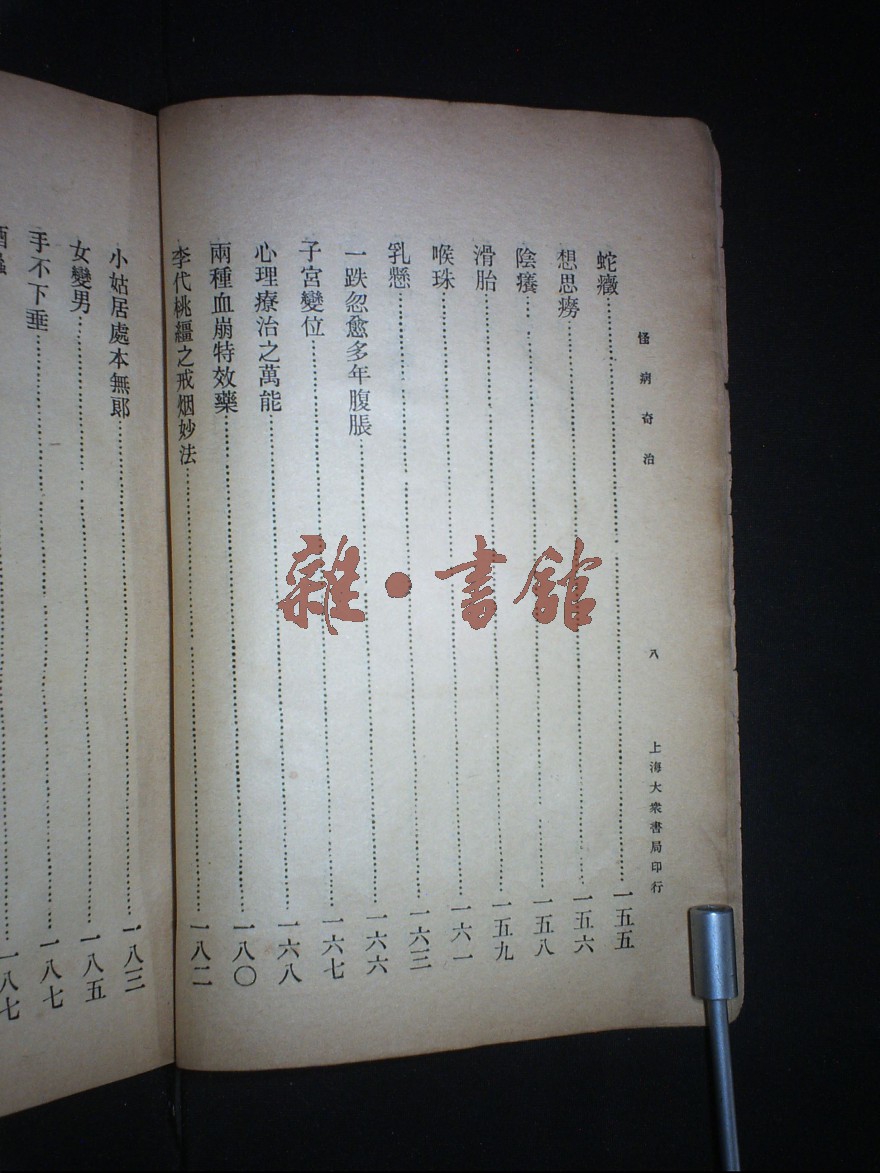 怪病奇治 八 上海大衆書局印行
蛇癥 一五五
想思癆 一五六
陰癢 一五八
滑胎 一五九
喉珠 一六一
乳懸 一六三
一跌忽愈多年腹脹 一六六
子宮變位 一六七
心理療治之萬能 一六八
兩種血崩特效藥 一八〇
李代桃繮之戒烟妙法 一八二
小姑居處本無郎 一八三
女變男 一八五
手不下垂 一八七
一八七
雜·書館